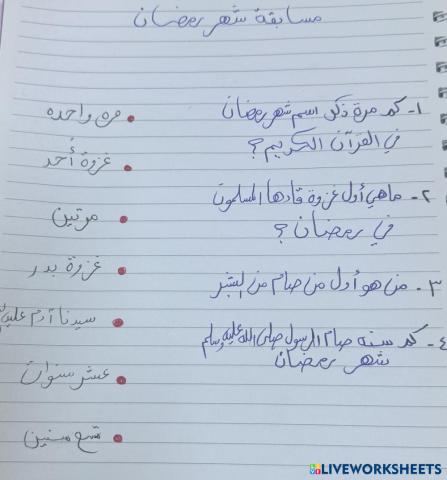 مسابقة شهر رمضان
١- كم مرة ذكر اسم شهر رمضان
في القرآن الكريم؟
٢- ماهي أول غزوة قادها المسلمون
في رمضان؟
٣- من هو أول من صام من البشر
٤- كم سنه صام الرسول صلى الله عليه وسلم
شهر رمضان
مره واحده
غزوة أحد
مرتين
غزوة بدر
سيدنا آدم عليه
عشر سنوات
تسع سنين
LIVEWORKSHEETS